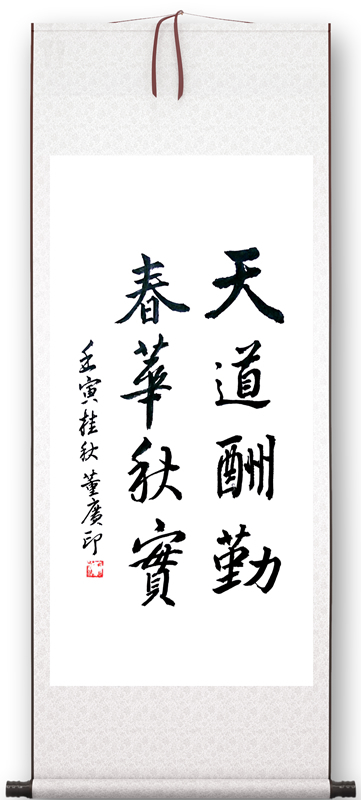 天道酬勤
春華秋實
壬寅桂秋董廣印